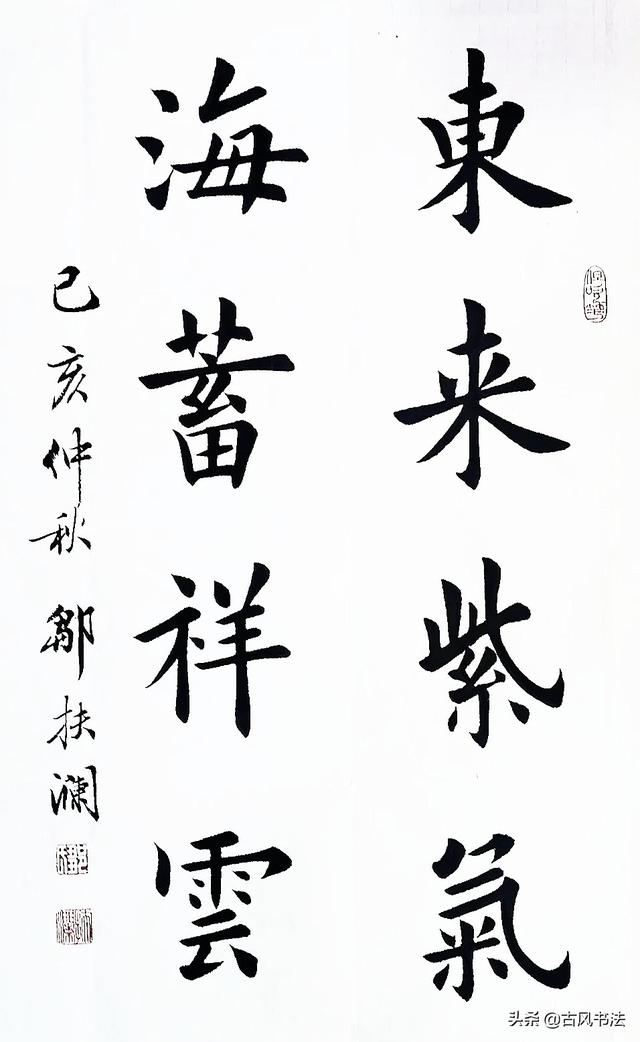 東来紫氣
海蓄祥雲
己亥仲秋 鄒扶瀾
头条 @古风书法